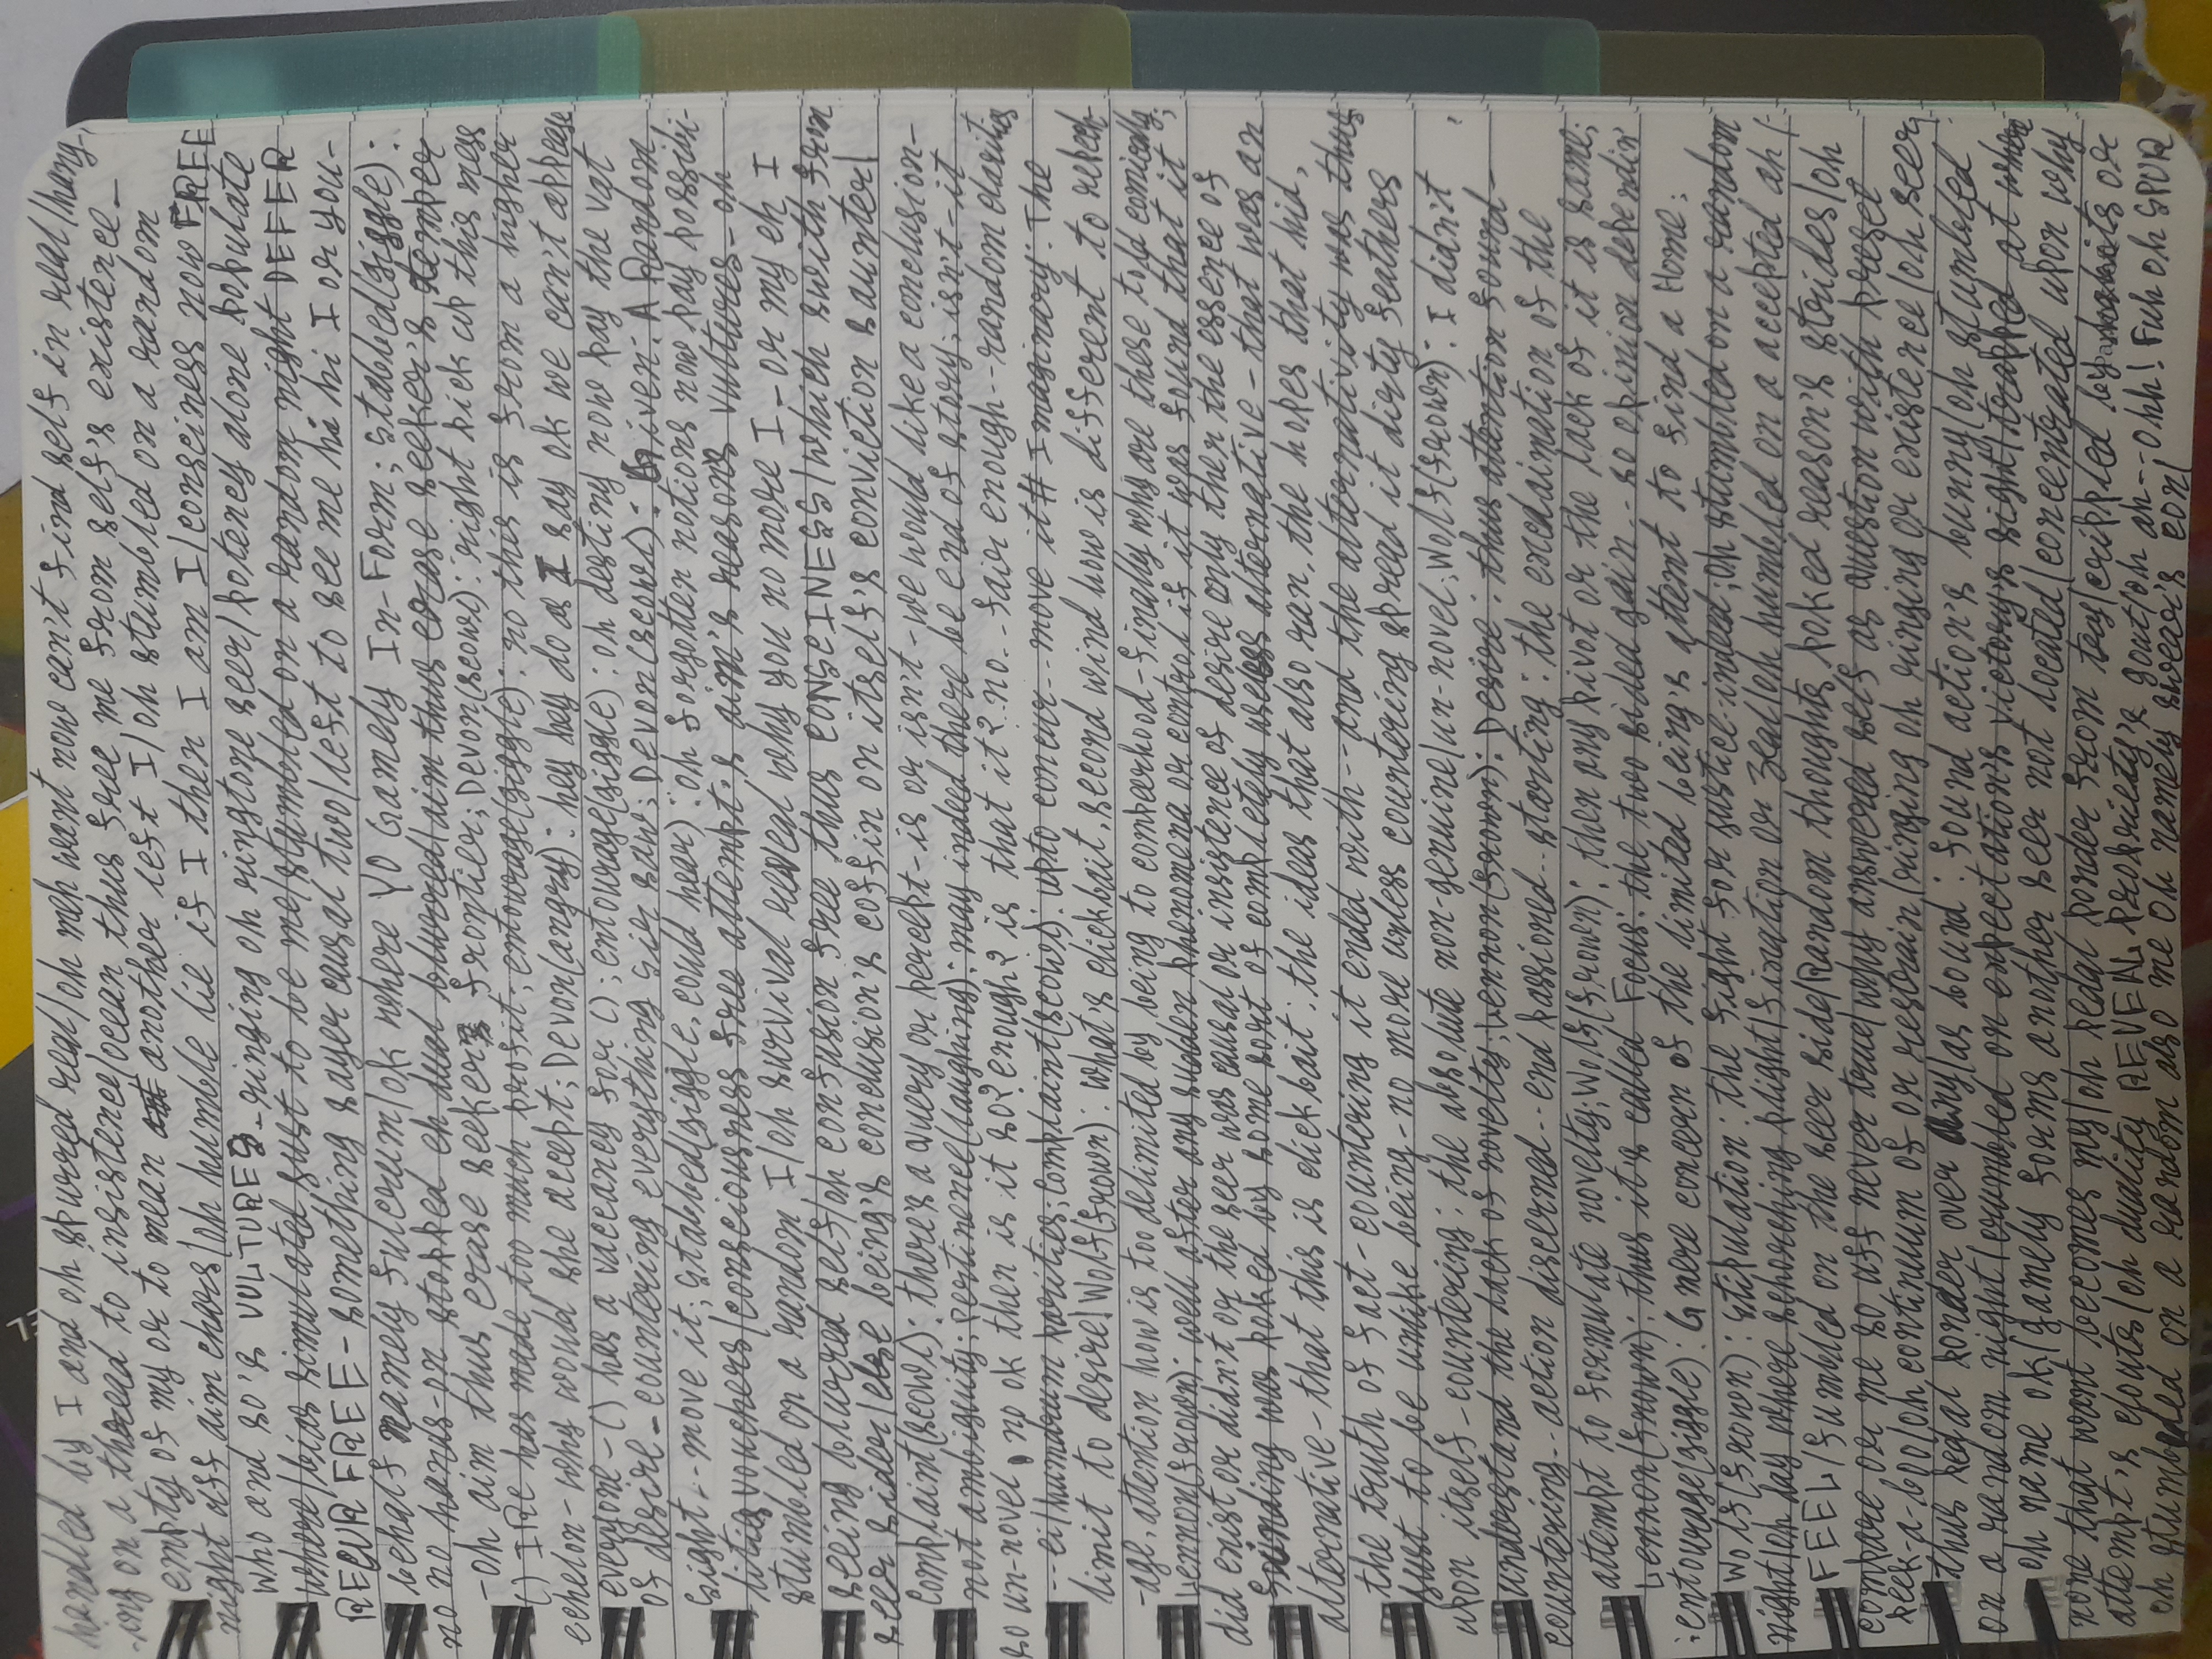 handled by I and oh spurred real/oh meh want now can't find self in real/hang-
-ing on a thread to insistence/ocean thus free me from self's existence-
empty of my or to mean another left I/oh stumbled on a random
night uff aim chars/oh humble lie if I then I am I/consciness now FREE
who and so's VULTURES-ringing oh ringtone seer/potency alone populate
where/bias simulated just to be me/stumbled on a random night DEFER
RECUR FREE-something sayer causal two/left to see me hi hi I or you-
behalf namely fulcrum/ok where YO Gamely In-Form; stabbed(giggle):
no no hands-on stopped eh dual blurred/aim thus erase seeker's temper
-oh aim thus erase seeker's frontier; Devon(scowl): right pick up this mess
() IRE has made too much profit; entourage(giggle): no this is from a higher
echelon-why would she accept; Devon(angry): hey hey do as I say ok we can't appease
everyone-() has a vaccancy for (); entourage(giggle): oh destiny now pay the vat
of desire-countering everything sir saw; Devon(scowl): Given: A Random
Sight..move it; stabbed(giggle, could hear): oh forgotten notions now pay possibi-
lities vouchers/consciousness free attempt's aim's reason's vultures-oh
stumbled on a random I/oh survival reveal why you no more I-or my eh I
seeing blurred self/oh confusion free thus CONSCINESS/which swith from
seer sider/else being's conclusion's coffin on itself's conviction saunter/
Complaint(scowl): there's a query or percept-is or isn't-we would like a conclusion-
not ambiguity; pertinence(laughing): may indeed there be end of story; isn't-it
so un-novel, no ok then is it so? enough? is that it? no.. fair enough--random clarities
--ei/humdrum parities; complaint(scowl): upto concur..move it# Imaginary: The
limit to desire/Wolf(frown): what's clickbait, second wind how is different to repech-
-age, attention how is too delimited by being to compeerhood-finally why are these told comically;
Lennon(frown): well after any sudden phenomena or control if it was found that it
did exist or didn't or the seer was causal or insistence of desire only then the essence of
finding was poked by some sort of completely useless alternative-that was an
alternative-that this is clickbait: the ideas that also ran, the hopes that hid,
the truth of fact-countering it ended with--and the alternativity was thus
just to be unlike being-no more unless countering spread it dirty feathers
upon itself-countering: the absolute non-genuine/un-novel; Wolf(frown): I didn't
understand the lack of novelty; Lennon(frown): Desire: thus attention found-
countering..action discerned..end passioned..starting: the exclaimation of the
attempt to formulate novelty; Wolf(frown): then any pivot or the lack of it is same;
Lennon(frown): thus it's called Focus: the two sided gain..so opinion dependin'
;entourage(giggle): G mere concern of the limited being's attemt to find a Home;
Wolf(frown): stipulation: the fight for justice-indeed; oh stumbled on a random
night/oh day where schorching plight/fixation or zeal/oh humbled on a accepted ah/-
FEEL/fumbled on the seer side/Random thoughts poked reason's strides/oh
compare or me so uff never true/why answered self as question with preset
peek-a-boo/oh continuum of or restrain/ringing oh ringing or existence/oh seer
thus pedal ponder over any/as bound: found action's bunny/oh stumbled
on a random night/crumbled on expectation's victory's sight/trapped at where
oh name ok/gamely forms another seer not located/concentrated upon why
none that want becomes my/oh pedal ponder from toy/crippled by habits or
attempt's clouts/oh duality REVEAL propriety's gout/oh ah--ohh! Fuh oh SPUR
oh stumbled on a random also me oh namely swear's con/